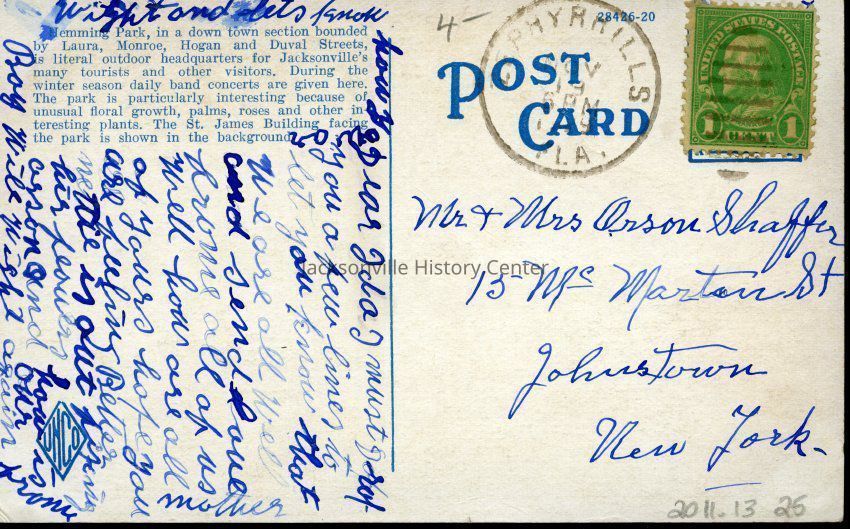 Wight and lets know
how
Hemming Park, in a down town section bounded
by Laura, Monroe, Hogan and Duval Streets,
is literal outdoor headquarters for Jacksonville's
many tourists and other visitors. During the
winter season daily band concerts are given here.
The park is particularly interesting because of
unusual floral growth, palms, roses and other in-
teresting plants. The St. James Building facing
the park is shown in the background.
28426-20
4-
POST
CARD
ZEPHYRHILLS
FLA.
UNITED STATES POSTAGE
1 CENT 1
Dear Ida I must
you a few lines to
let you know that
We are all Well
and send Love
frome all of us
Well how are all
of yours hope you
are fuling Better
mother
his
orson and how is
Roy Will Wight again frome
Mr & Mrs Orson Shaffer
15 Mc Marten St
Johnstown
New York-
Jacksonville History Center
2011.13 25